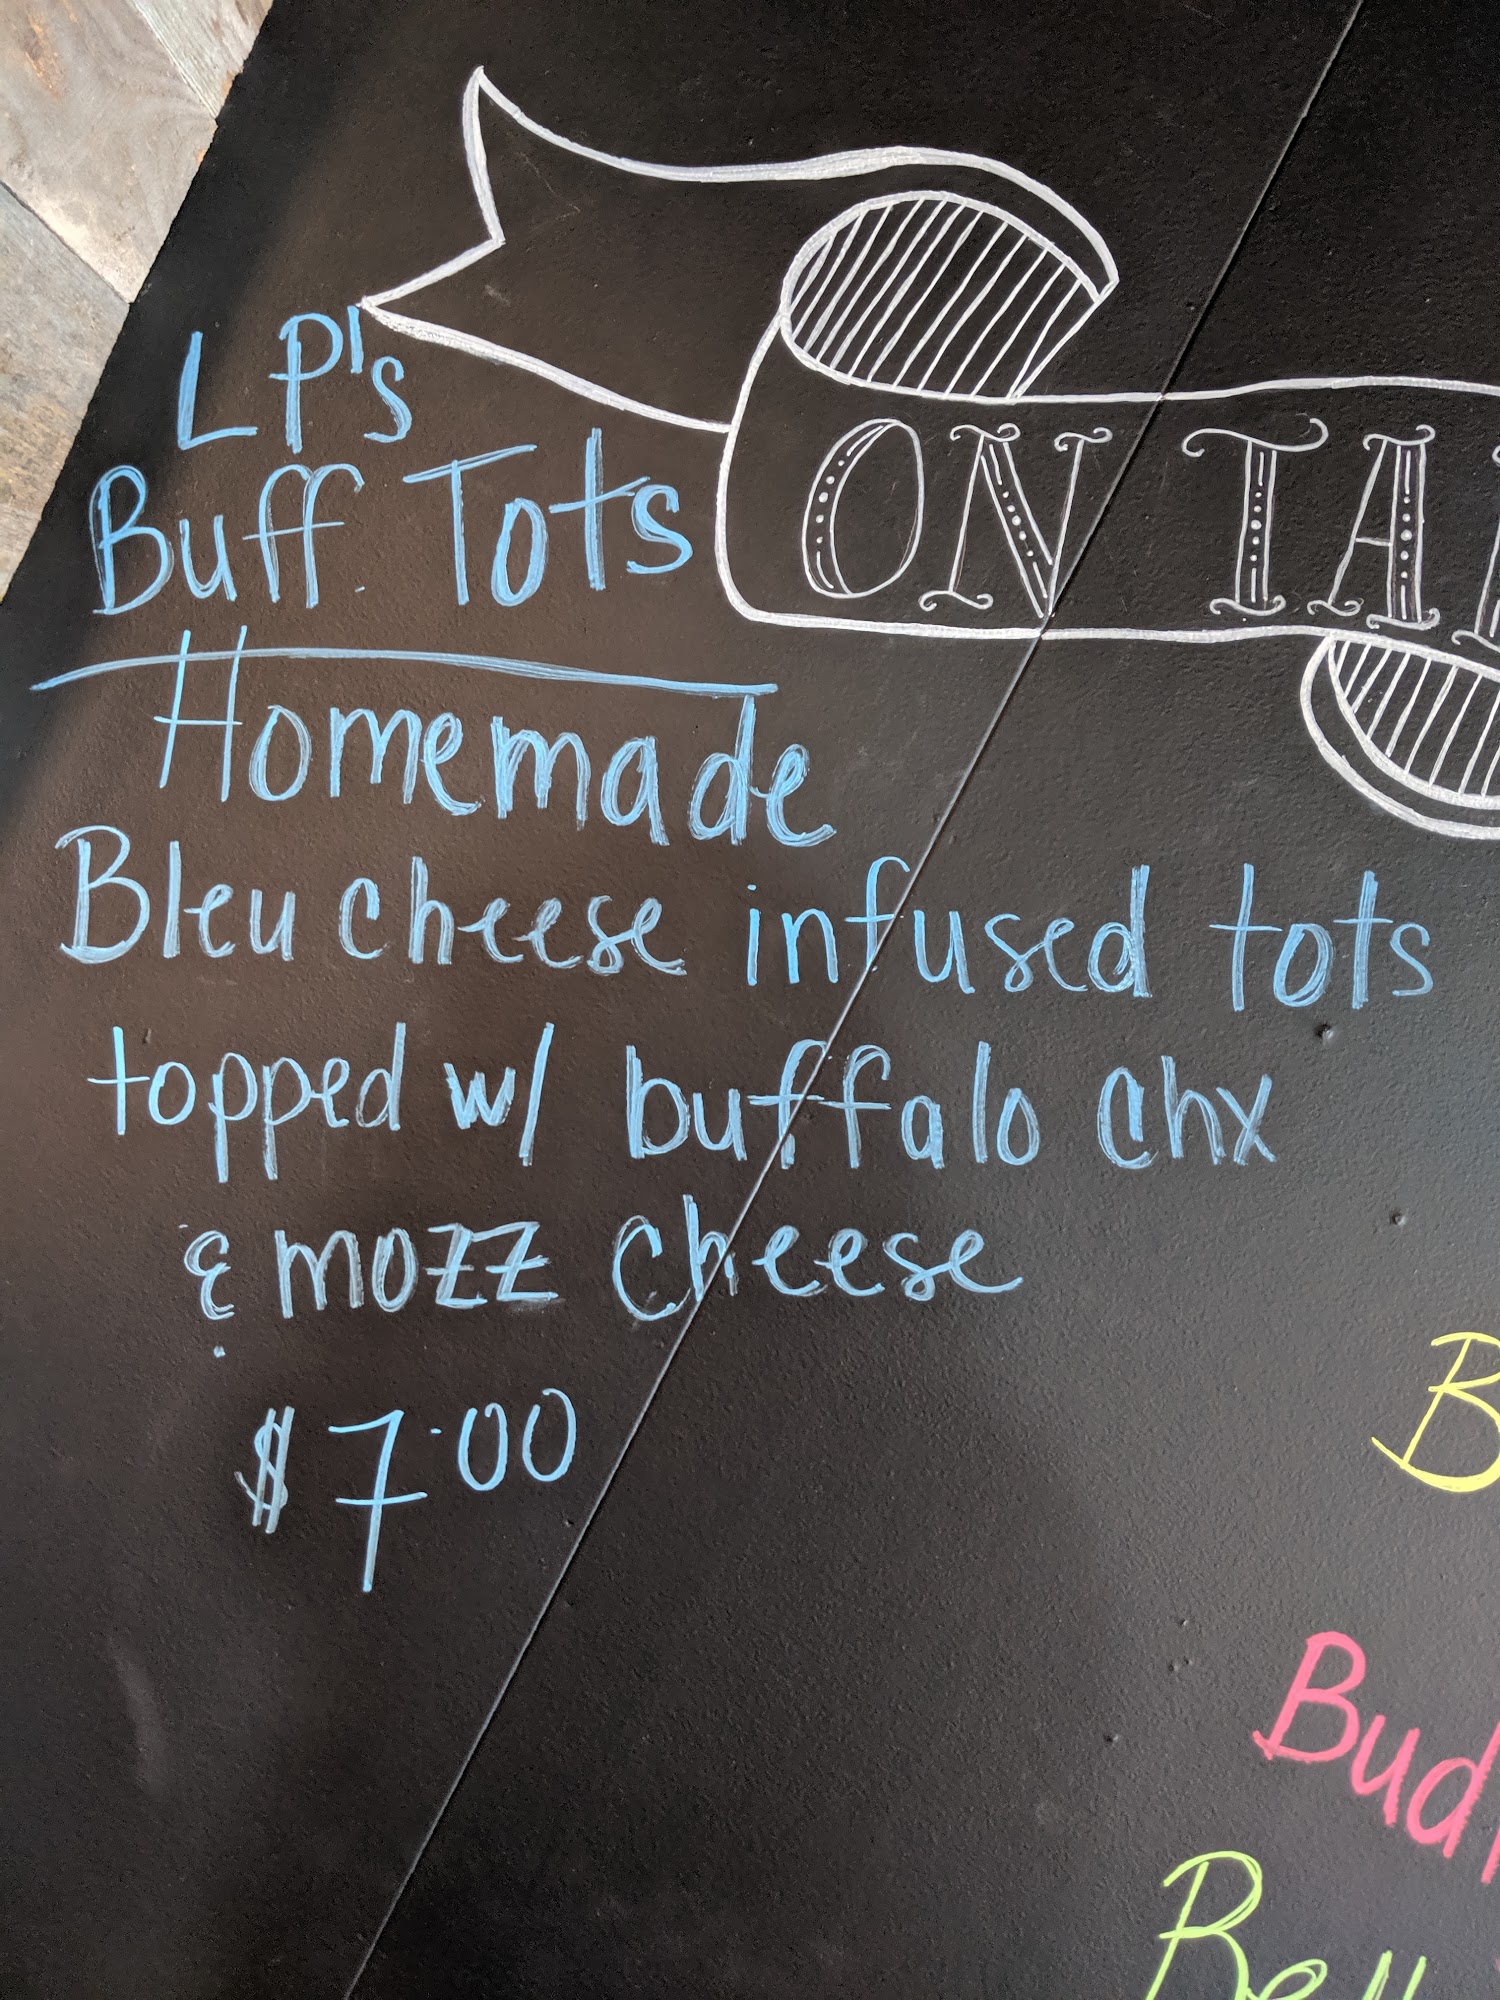 LP's
Buff. Tots
Homemade
Bleu cheese infused tots
topped w/ buffalo chx
& mozz cheese
$7.00
ON TA
B
Bud
Bell